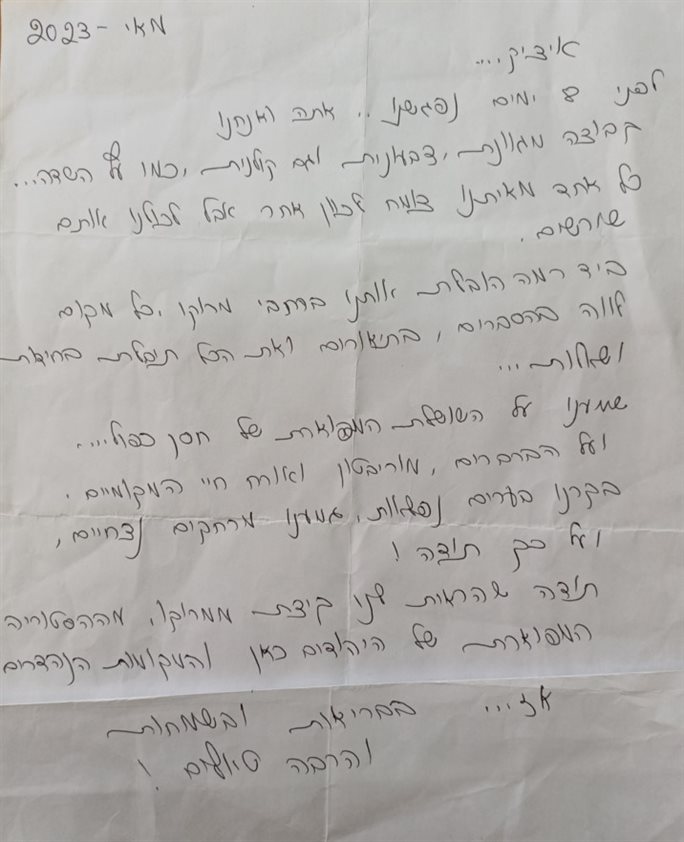 מאי - 2023
איציק....
לפני 8 ימים נפגשנו .. אתה ואנחנו
קבוצה מגוונת, צבעונית וגם קולנית, כמו על השדה...
כל אחד מאיתנו צומח לכוון אחר אבל לכולנו אותם
שורשים.
ביד רמה הובלת אותנו ברחבי מרוקו, כל מקום
לווה בהסברים, בתיאורים ואת הכל תיבלת בחידות
ושאלות...
שמענו על השושלת המפוארת של חסן כפול....
ועל הברברים, מוריבטון ואורח חיי המקומיים.
בקרנו בערים נפלאות, גמענו מרחקים נצחיים,
ועל כך תודה!
תודה שהראית לנו קיצת ממרוקו, מההסטוריה
המפוארת של היהודים כאן והמקומות הנהדרים
אז... בבריאות ובשמחות
והרבה טיולים!